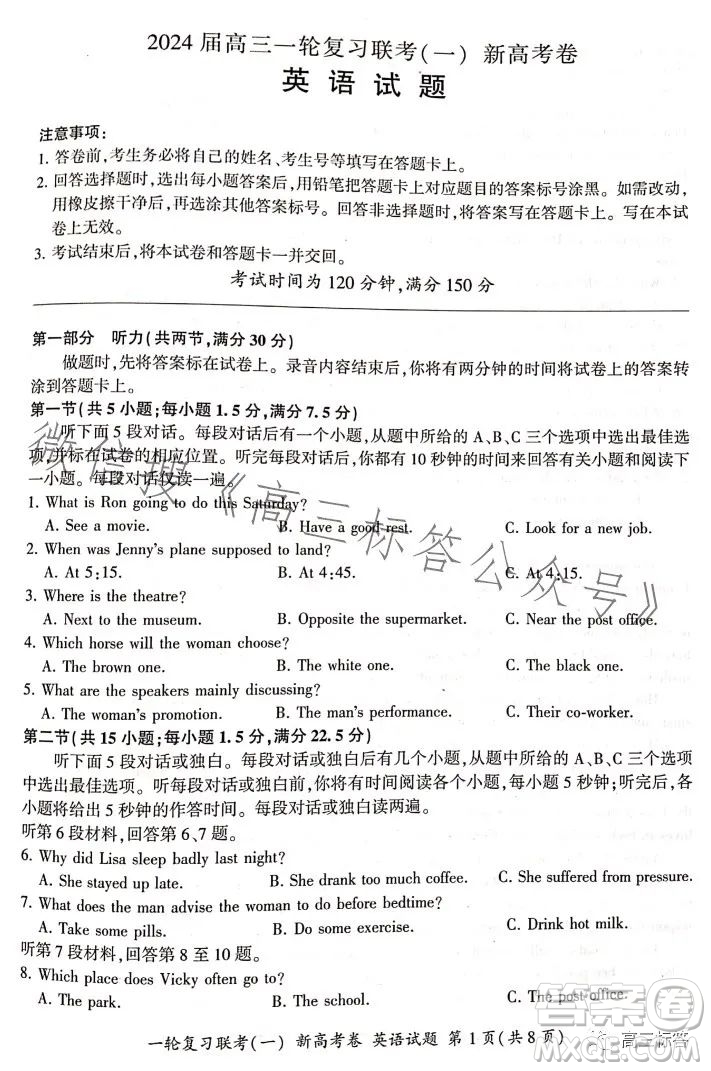 2024 届高三一轮复习联考(一) 新高考卷
英 语 试 题
注意事项:
1. 答卷前,考生务必将自己的姓名、考生号等填写在答题卡上。
2. 回答选择题时,选出每小题答案后,用铅笔把答题卡上对应题目的答案标号涂黑。如需改动,
用橡皮擦干净后,再选涂其他答案标号。回答非选择题时,将答案写在答题卡上。写在本试
卷上无效。
3. 考试结束后,将本试卷和答题卡一并交回。
考试时间为 120 分钟,满分 150 分
第一部分 听力(共两节,满分 30 分)
做题时,先将答案标在试卷上。录音内容结束后,你将有两分钟的时间将试卷上的答案转
涂到答题卡上。
第一节(共 5 小题;每小题 1. 5 分,满分 7. 5 分)
听下面 5 段对话。每段对话后有一个小题,从题中所给的 A、B、C 三个选项中选出最佳选
项,并标在试卷的相应位置。听完每段对话后,你都有 10 秒钟的时间来回答有关小题和阅读下
一小题。每段对话仅读一遍。
1. What is Ron going to do this Saturday?
A. See a movie. B. Have a good rest. C. Look for a new job.
2. When was Jenny's plane supposed to land?
A. At 5:15. B. At 4:45. C. At 4:15.
3. Where is the theatre?
A. Next to the museum. B. Opposite the supermarket. C. Near the post office.
4. Which horse will the woman choose?
A. The brown one. B. The white one. C. The black one.
5. What are the speakers mainly discussing?
A. The woman's promotion. B. The man's performance. C. Their co-worker.
第二节(共 15 小题;每小题 1. 5 分,满分 22. 5 分)
听下面 5 段对话或独白。每段对话或独白后有几个小题,从题中所给的 A、B、C 三个选项
中选出最佳选项。听每段对话或独白前,你将有时间阅读各个小题,每小题 5 秒钟;听完后,各
小题将给出 5 秒钟的作答时间。每段对话或独白读两遍。
听第 6 段材料,回答第 6、7 题。
6. Why did Lisa sleep badly last night?
A. She stayed up late. B. She drank too much coffee. C. She suffered from pressure.
7. What does the man advise the woman to do before bedtime?
A. Take some pills. B. Do some exercise. C. Drink hot milk.
听第 7 段材料,回答第 8 至 10 题。
8. Which place does Vicky often go to?
A. The park. B. The school. C. The post office.
一轮复习联考(一) 新高考卷 英语试题 第 1 页(共 8 页)
微信搜《高三标答公众号》
高三标答
答案圈
MXQE.COM